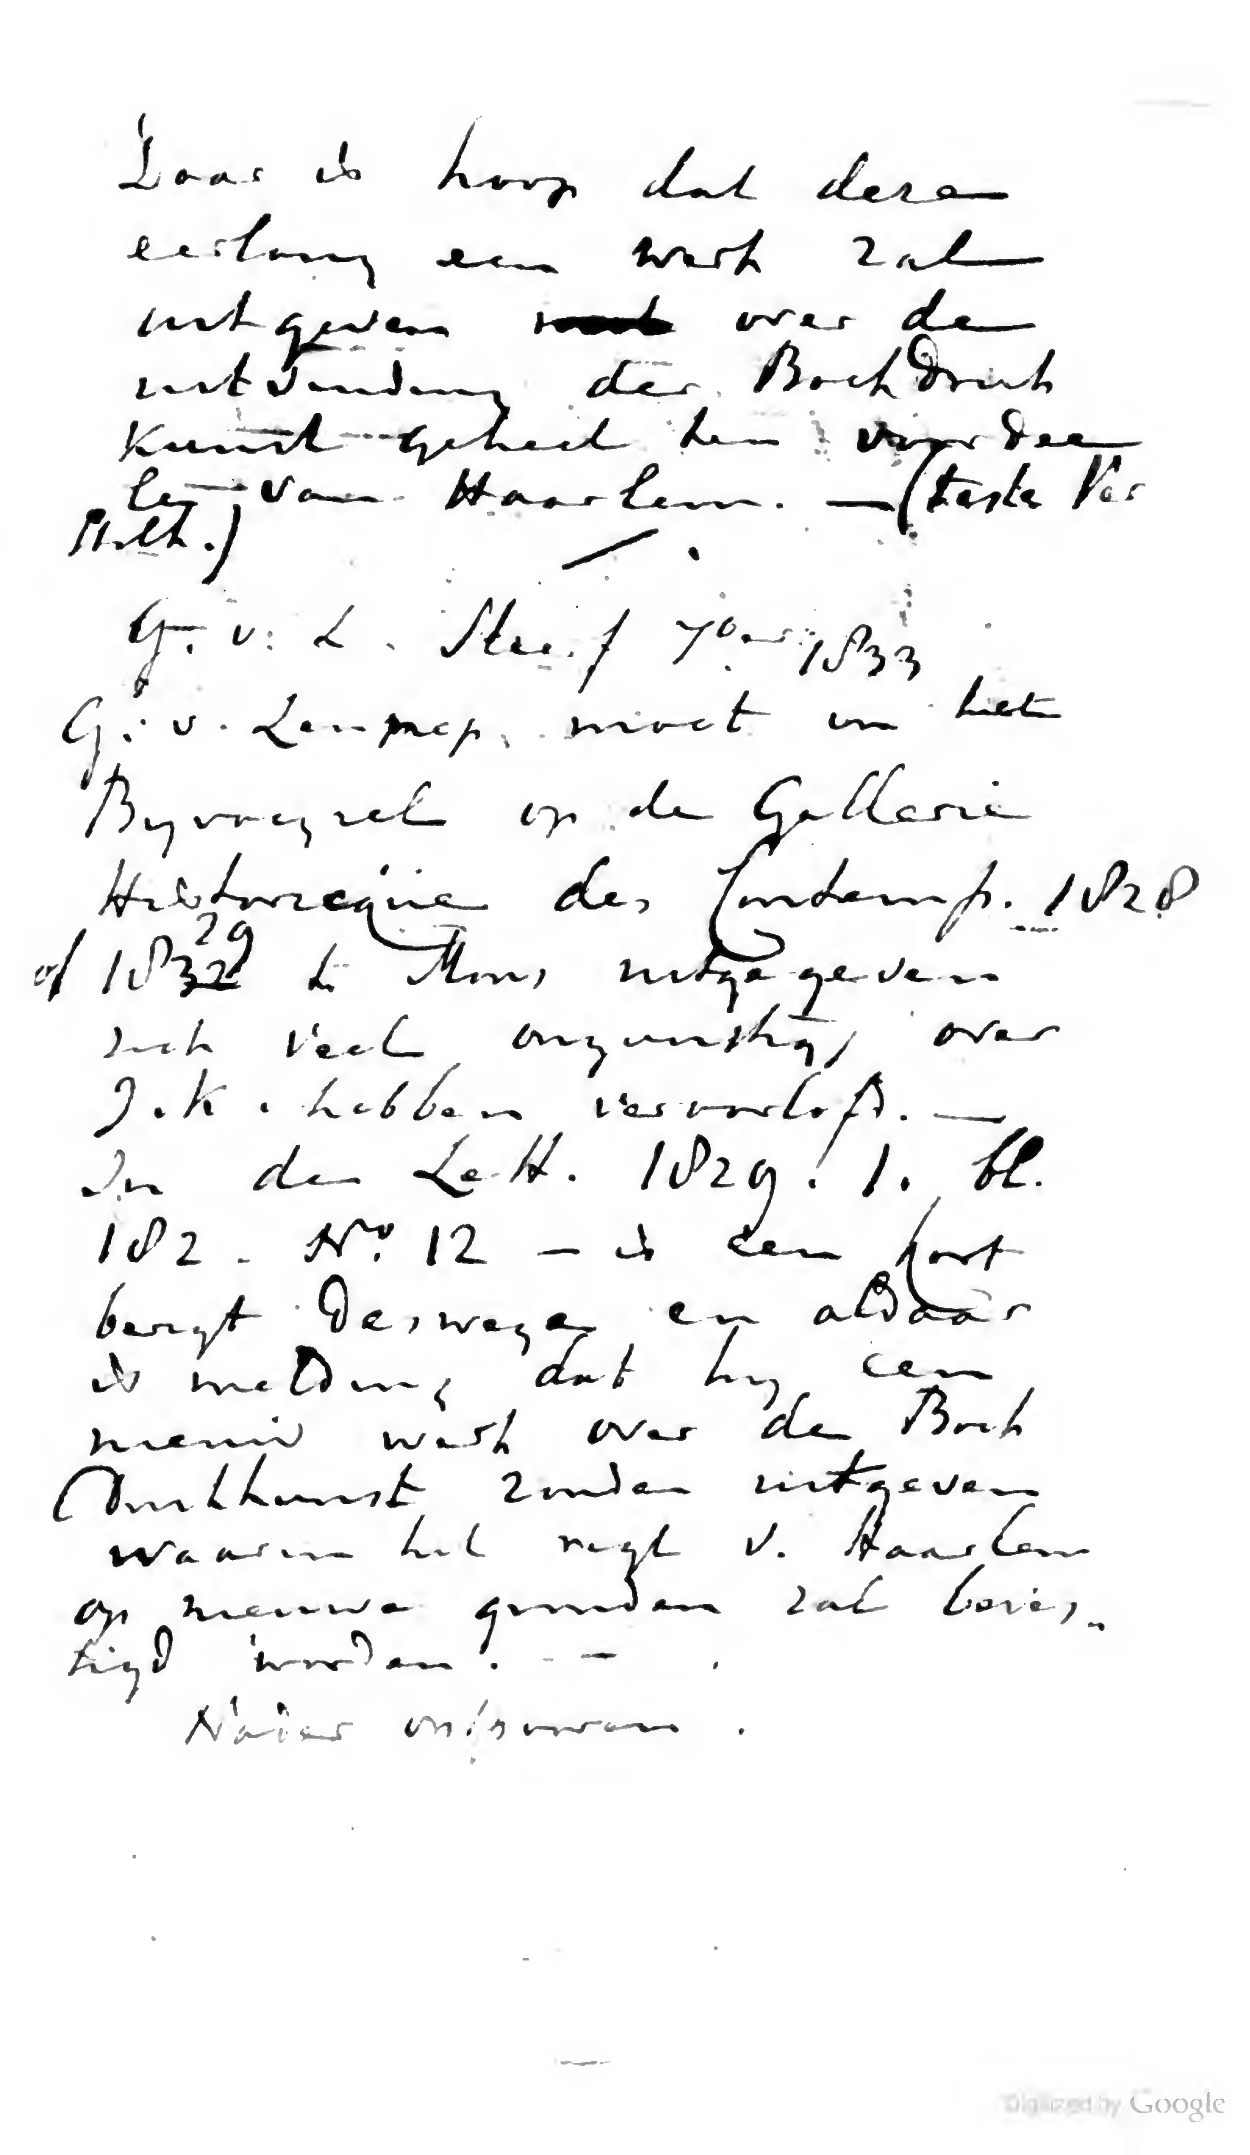 Daar is hoop dat deze
eerlang een werk zal
uitgeven over de
uitvinding der Boekdruk
kunst geheel ten voordee
le van Haarlem. — (teste Ver
Meth.)
G. v. L. Stierf 7ber 1833
G. v. Lennep, moet in het
Byvoegzel op de Gallerie
Historicque des Contemp. 1828
of 1832 29 te Mons uitgegeven
zich veel ongunstigs over
J. K. hebben veroorlofd. —
In den Lett. 1829. 1. bl.
182. No. 12 — is een kort
berigt deswege en aldaar
is melding dat hy een
nieuw werk over de Boek
drukkunst zouden uitgeven
waarin het regt v. Haarlem
op nieuwe gronden zal beves„
tigd worden. —
Nader
Digitized by Google